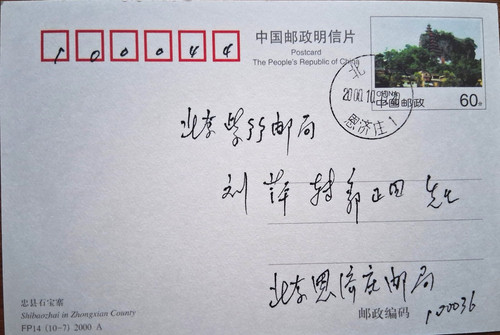 100044
中国邮政明信片
Postcard
The People's Republic of China
中国邮政
60分
北
2000.10
恩济庄1
北京紫竹邮局
刘萍转郭正田先生
北京恩济庄邮局
邮政编码 100036
忠县石宝寨
Shibaozhai in Zhongxian County
FP14 (10-7) 2000 A